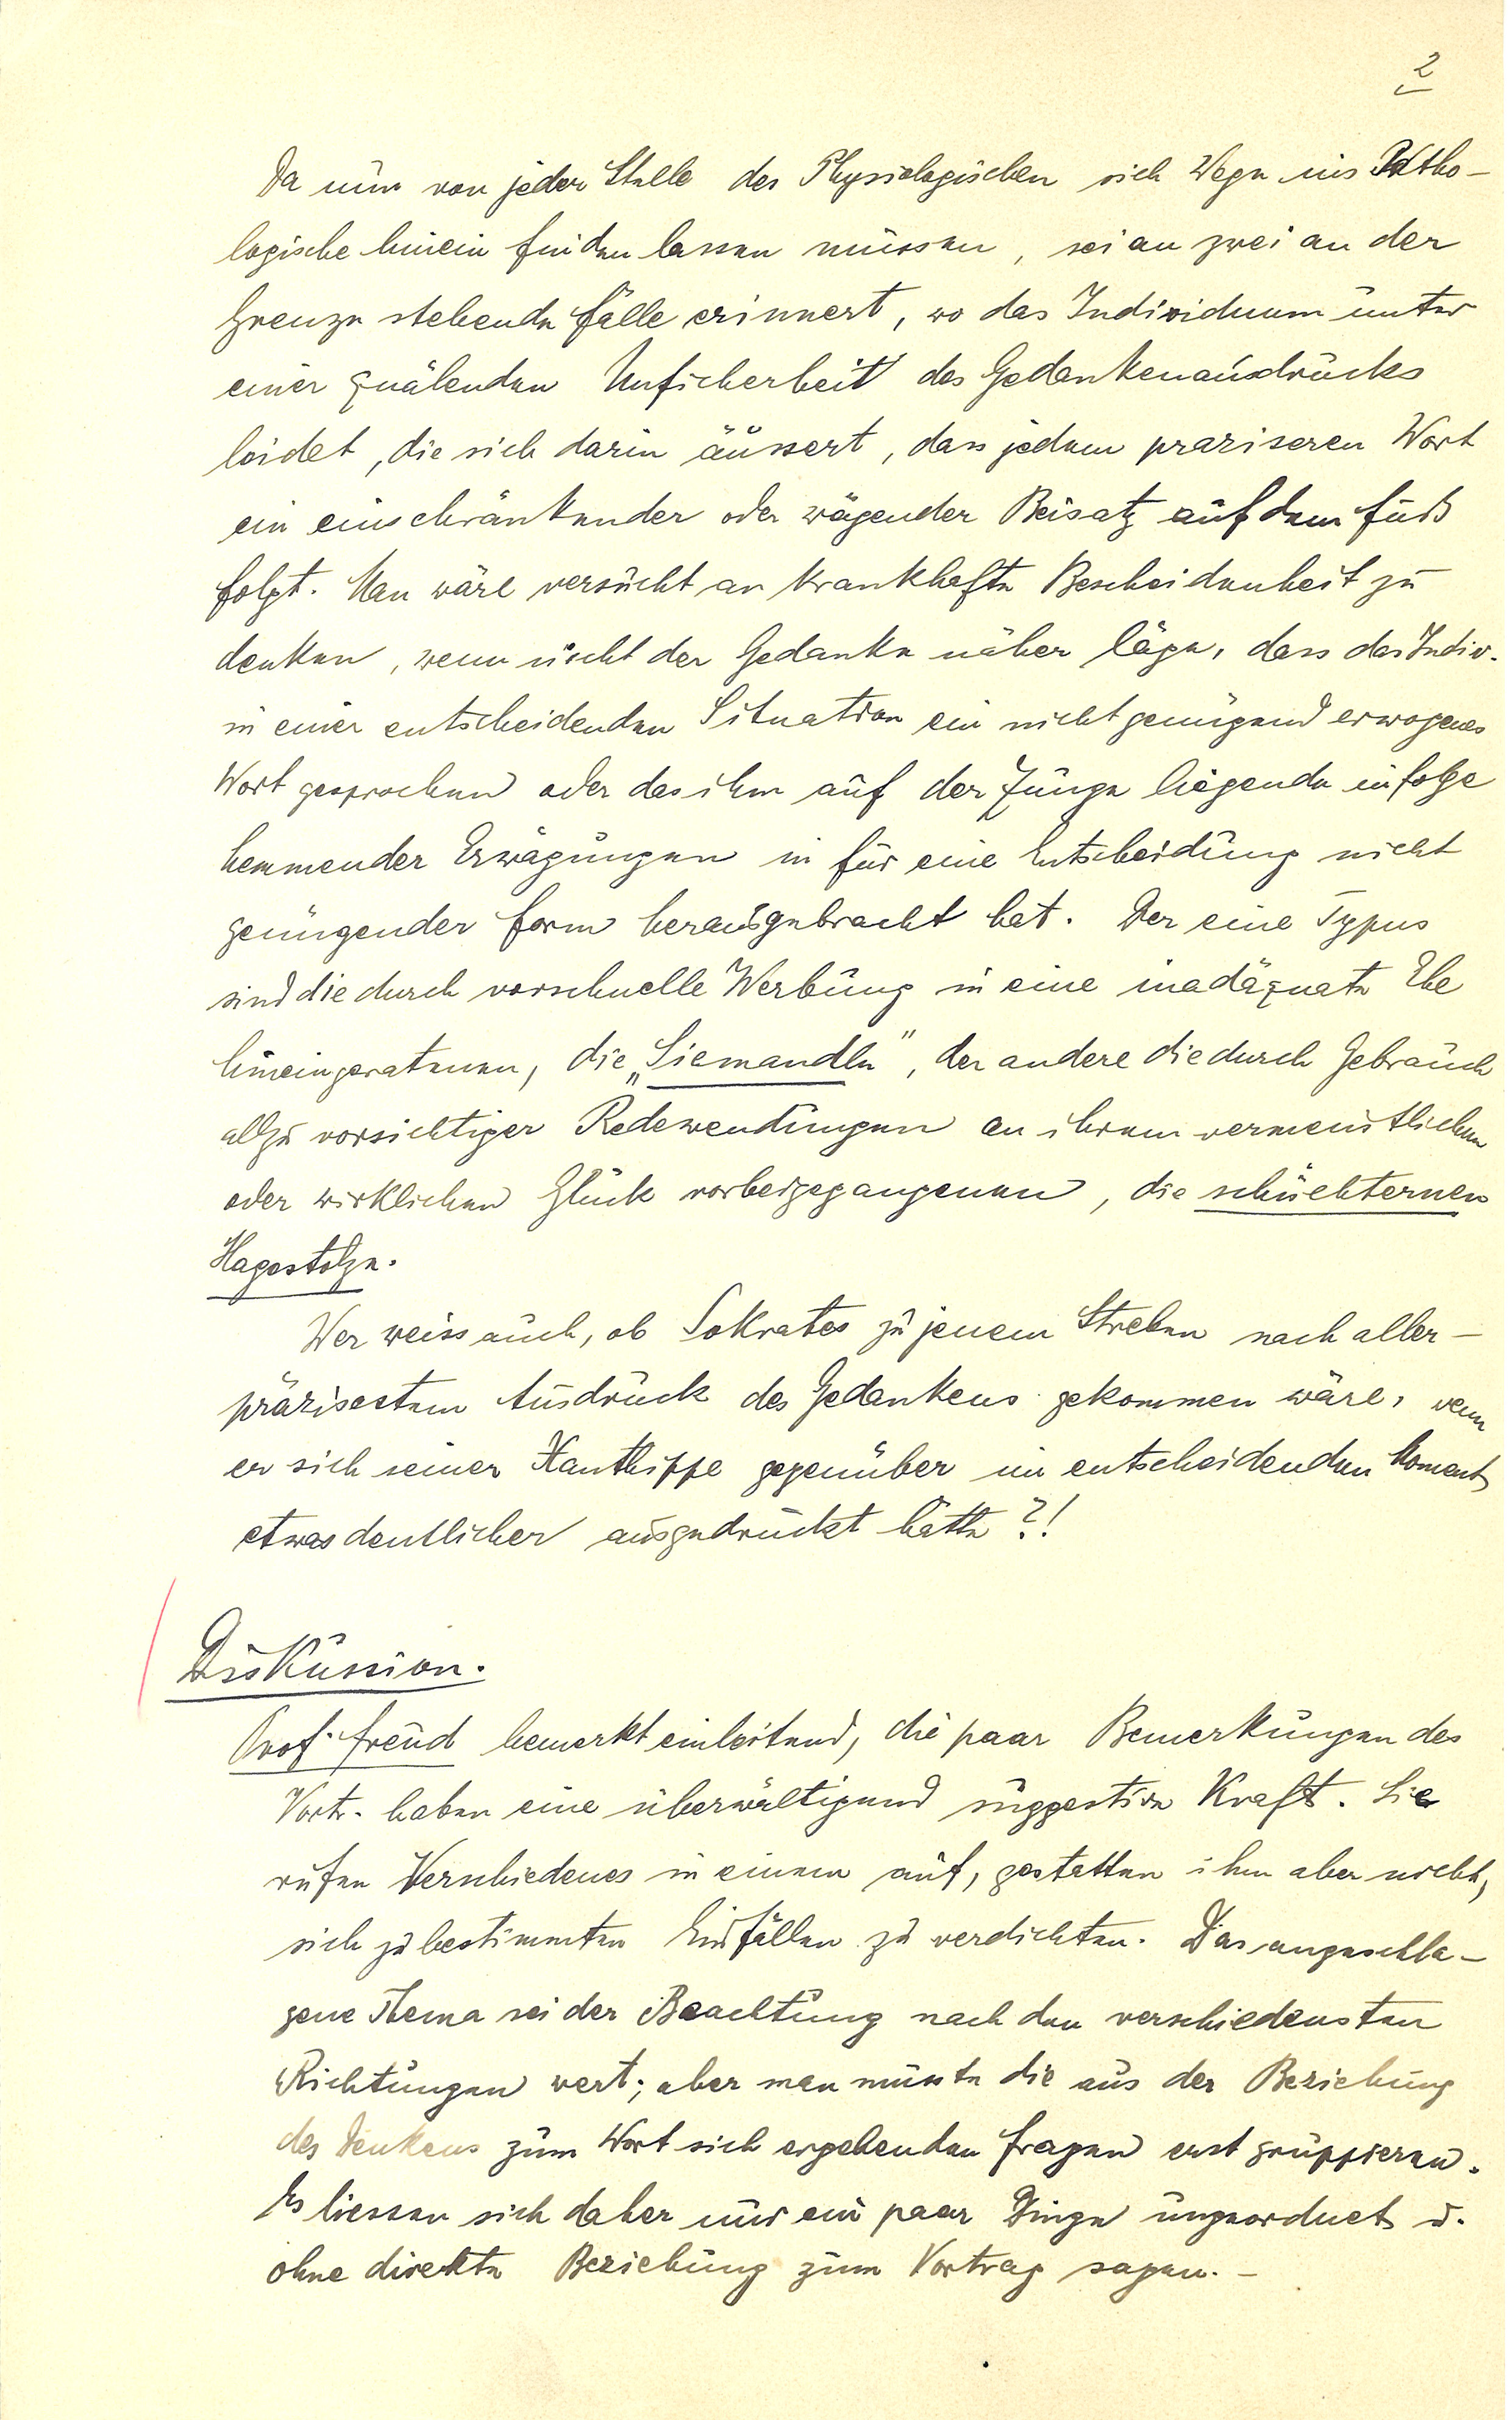 2
Da nun von jeder Stelle des Physiologischen sich Wege ins Patho-
logische hinein finden lassen müssen, sei an zwei an der
Grenze stehende Fälle erinnert, wo das Individuum unter
einer quälenden Unsicherheit des Gedankenausdrucks
leidet, die sich darin äussert, dass jedem präziseren Wort
ein einschränkender oder wägender Beisatz auf dem Fuß
folgt. Man wäre versucht an krankhafte Bescheidenheit zu
denken, wenn nicht der Gedanke näher läge, dass das Indiv.
in einer entscheidenden Situation ein nicht genügend erwogenes
Wort gesprochen oder das ihm auf der Zunge liegende infolge
hemmender Erwägungen in für eine Entscheidung nicht
genügender Form herausgebracht hat. Der eine Typus
sind die durch vorschnelle Werbung in eine inadäquate Ehe
hineingeratenen, die „Siemandln", der andere die durch Gebrauch
allzu vorsichtiger Redewendungen an ihrem vermeintlichen
oder wirklichen Glück vorbeigegangenen, die schüchternen
Hagestolze.
Wer weiss auch, ob Sokrates zu jenem Streben nach aller-
präzisestem Ausdruck des Gedankens gekommen wäre, wenn
er sich seiner Xanthippe gegenüber im entscheidenden Moment
etwas deutlicher ausgedrückt hätte?!
Diskussion.
Prof. Freud bemerkt einleitend, die paar Bemerkungen des
Vortr. haben eine überwältigend suggestive Kraft. Sie
rufen Verschiedenes in einem auf, gestatten ihm aber nicht,
sich zu bestimmten Einfällen zu verdichten. Das angeschla-
gene Thema sei der Beachtung nach den verschiedensten
Richtungen wert; aber man müsste die aus der Beziehung
des Denkens zum Wort sich ergebenden Fragen erst gruppieren.
Es liessen sich daher nur ein paar Dinge ungeordnet u.
ohne direkte Beziehung zum Vortrag sagen. -